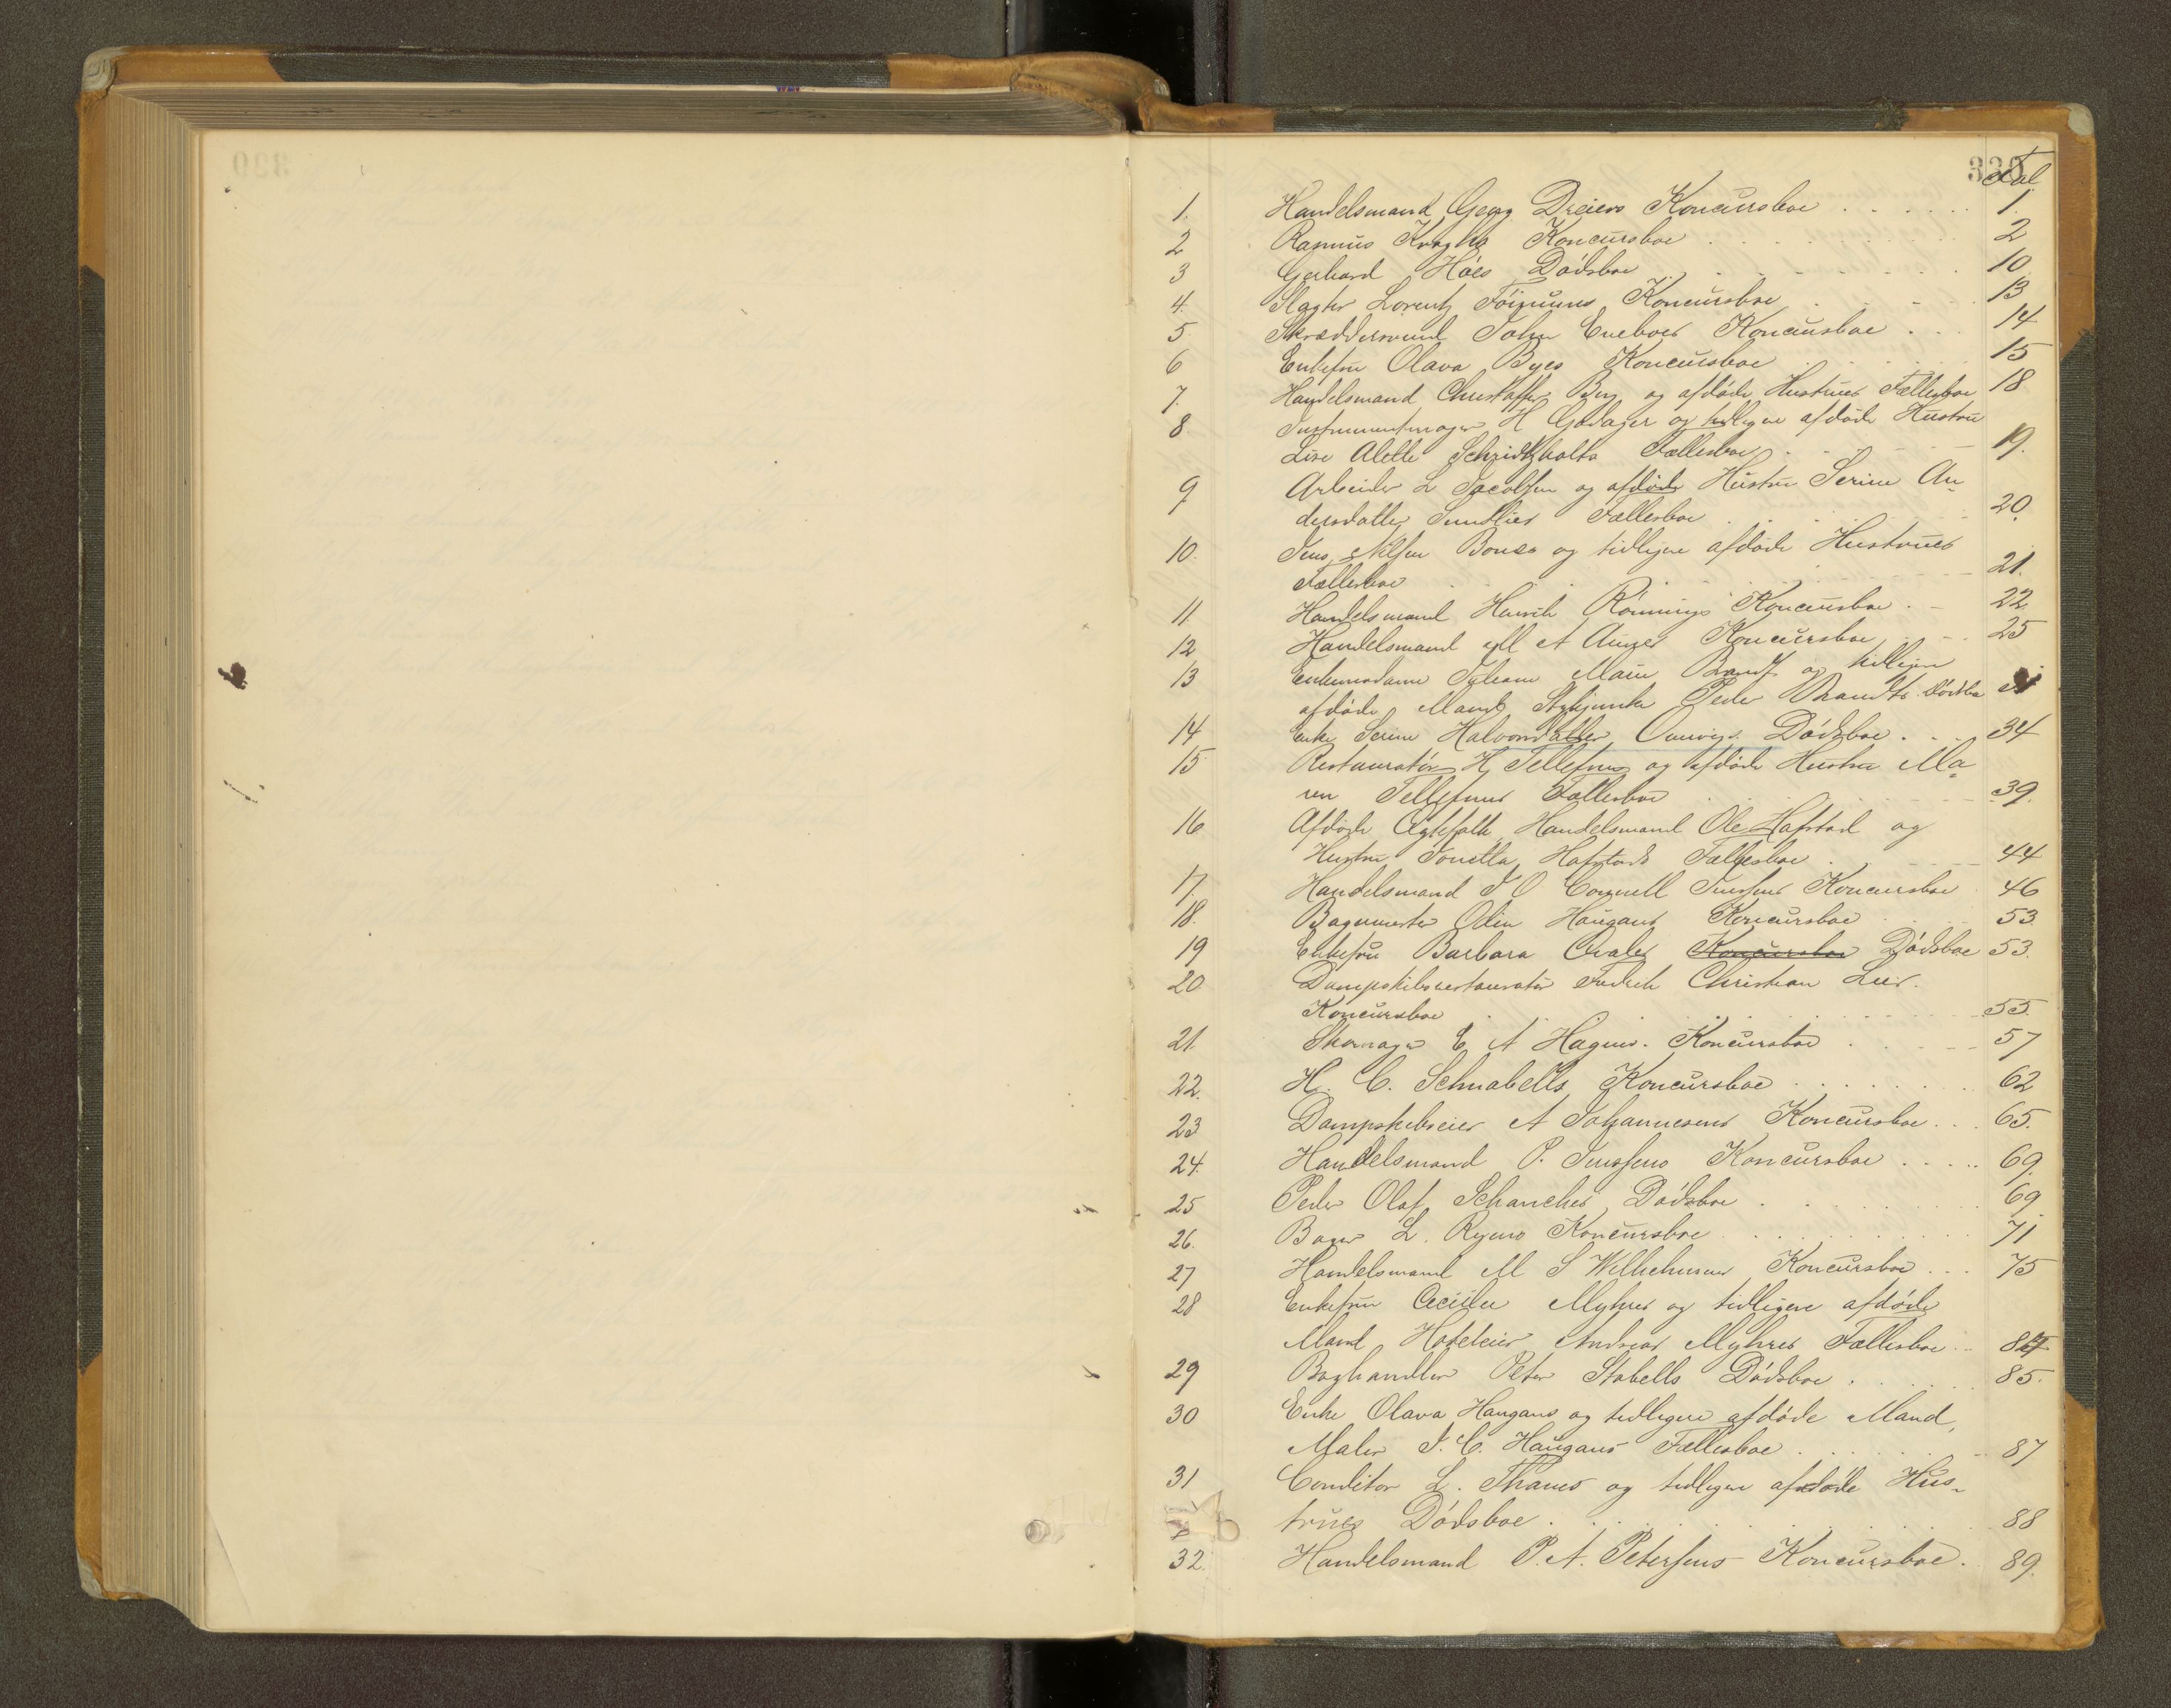 330
Fol
1. Handelsmand Georg Dreiers Koncursboe 1.
2 Rasmus Kroghs Koncursboe 2
3 Gerhard Höes Dödsboe 10
4. Slagter Lorentz Koncursboe 13
5. John Eneboes Koncursboe 14
6 Enkefru Olava Byes Koncursboe 15
7. Handelsmand Christoffer Berg og afdöde Hustrues Fællesboe 18
8. Instrumentmager H Godager og tidligere afdöde Hustru
Lise Alette Fællesboe 19.
9 Arbeider L Jacobsen og afdöde Hustru Serine An-
dersdatter Fællesboe 20.
10. Jens Nilsen og tidligere afdöde Hustrues
Fællesboe 21.
11. Handelsmand Henrik Rönnings Koncursboe 22.
12 Handelsmand M A Aunes Koncursboe 25
13 Enkemadame Marie Brandt og tidligere
afdöde Mand Peder Brandts Dödsboe
14 Enke Serine Halvorsdatter Dödsboe 34
15 Restauratör H Tellefsens og afdöde Hustru Ma-
ren Tellefsens Fællesboe 39.
16 Afdöde Ægtefolk Handelsmand Ole Hafstad og
Hustru Hafstads Fællesboe 44
17. Handelsmand J O Cornell Jensens Koncursboe 46
18. Bagermester Odin Haugans Koncursboe 53.
19 Enkefru Barbara Koncursboe Dödsboe 53.
20 Dampskibsrestauratör Fredrik Christian Lies.
Koncursboe 55.
21. Skomager E A Hagens. Koncursboe 57
22. H. C. Schnabells Koncursboe 62
23 Dampskibseier A Johannesens Koncursboe 65.
24. Handelsmand P. Jenssens Koncursboe 69.
25 Peder Olaf Schanches Dödsboe 69
26. Bager L. Ryens Koncursboe 71
27 Handelsmand M S Wilhelmsens Koncursboe 75
28 Enkefru Cecilie Myhres og tidligere afdöde
Mand Hoteleier Andreas Myhres Fællesboe 84
29 Boghandler Peter Stabells Dödsboe 85.
30 Enke Olava Haugans og tidligere afdöde Mand,
Maler J. C. Haugans Fællesboe 87
31 Conditor L. Thanes og tidligere afdöde Hus-
trues Dödsboe 88
32. Handelsmand P. A. Petersens Koncursboe. 89.